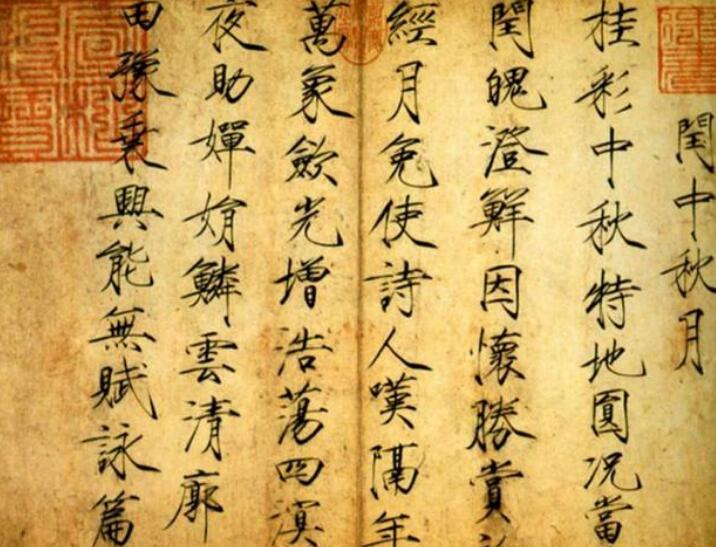 閏中秋月
桂彩中秋特地圓況當
閏魄澄鮮因懷勝賞
經月免使詩人嘆隔年
萬象歛光增浩蕩四溟
夜助嬋娟鱗雲清廓
田豫乘興能無賦詠篇